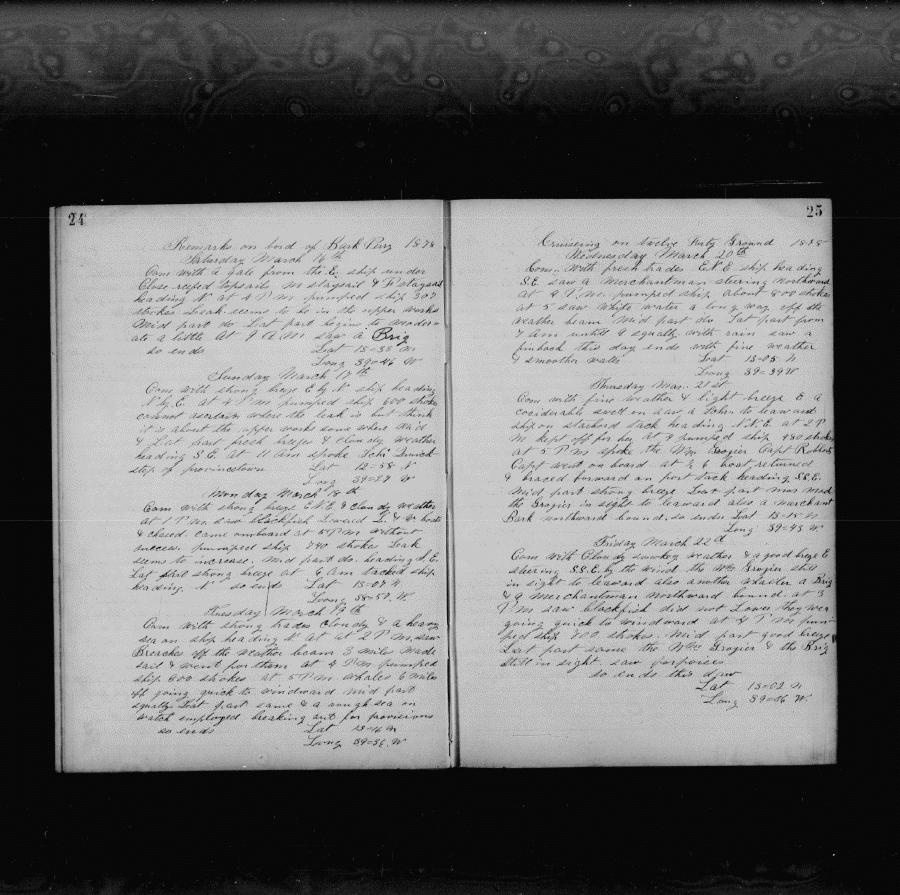 24
Remarks on bord of Bark Perry 1878
Saturday March 16th
Com with a gale from the E. ship under
Close reefed Topsails M staysail & F T staysail
heading N at 4 P M pumped ship 307
strokes Leak seems to be in the upper works
Mid part do Lat part begins to moder=
ate a little At 9 A M saw a Brig
so ends Lat 13=38 N
Long 39=46 W
Sunday March 17th
Com with strong breeze E by N ship heading
N by E. at 4 P M pumped ship 600 strokes
cannot ascertain where the leak is but think
it is about the upper works some where Mid
& Lat part fresh breeze & cloudy weather
heading S.E. at 11 am spoke Schr Quick
step of provincetown Lat 12=58 N
Long 39=27 W
Monday March 18th
Com with strong breeze E.N.E & cloudy weather
at 1 P M. saw blackfish Lowered L. & W boats
& chased. came onboard at 5 P M without
success. pumped ship 740 strokes Leak
seems to increase. Mid part do. heading S.E.
Lat part strong breeze at 6 Am tacked ship
heading N so ends Lat 13=07 N
Loong 38=52 W
Tuesday March 19th
Com with strong trades cloudy & a heavy
sea on ship heading N at 2 P M. saw
Breaches off the weather beam 3 miles Made
sail & went for them at 4 P M pumped
ship 800 strokes at 5 P M whales 6 miles
off going quick to windward Mid part
squally Lat part same & a rough sea on
watch employed breaking out for provisions
so ends Lat 13=16 N
Loong 39=36 W
25
Cruisering on twelve Forty Ground 1878
Wednesday March 20th
Com. With fresh trades E.N.E ship heading
S.E. saw a Merchantman steering Northward
at 4 P M. pumped ship about 800 strokes
at 5 saw White water a long way off the
weather beam Mid part do Lat part from
7 am untill 9 squally with rain saw a
finback this day ends with fine weather
& smoother water Loat 13=05 N
Long 39=39 W
Thursday Mar. 21st
Com with fine weather & light breeze E a
cociderable swell on saw a Schr. to leaward
ship on starbord tack heading N.N.E. at 2 P
M kept off for her at 4 pumped ship 980 strokes
at 5 P M spoke the Wm Grozier Capt Roberts
Capt went on board at ½ 6 boat returned
& braced forward on port tack heading S.S.E.
Mid part strong breeze Loat part
the Grozier in sight to leaward also a merchant
Bark northward bound. so ends Lat 13=15 N
Long 39=43 W
Friday March 22d
Com with Cloudy smokey weather & a good breeze E
steering S.S.E. by the wind the Wm Grozier still
in sight to leaward also another whaler a Brig
& a Merchantman Northward bound. at 3
P M saw blackfish did not Lower they wer
going quick to windward at 4 P M pum=
ped ship 700 strokes. Mid part good breeze
Lat part same the Wm Grozier & the Brig
still in sight saw porpoises
so ends this day
Lat 13=02 N
Long 39=16 W